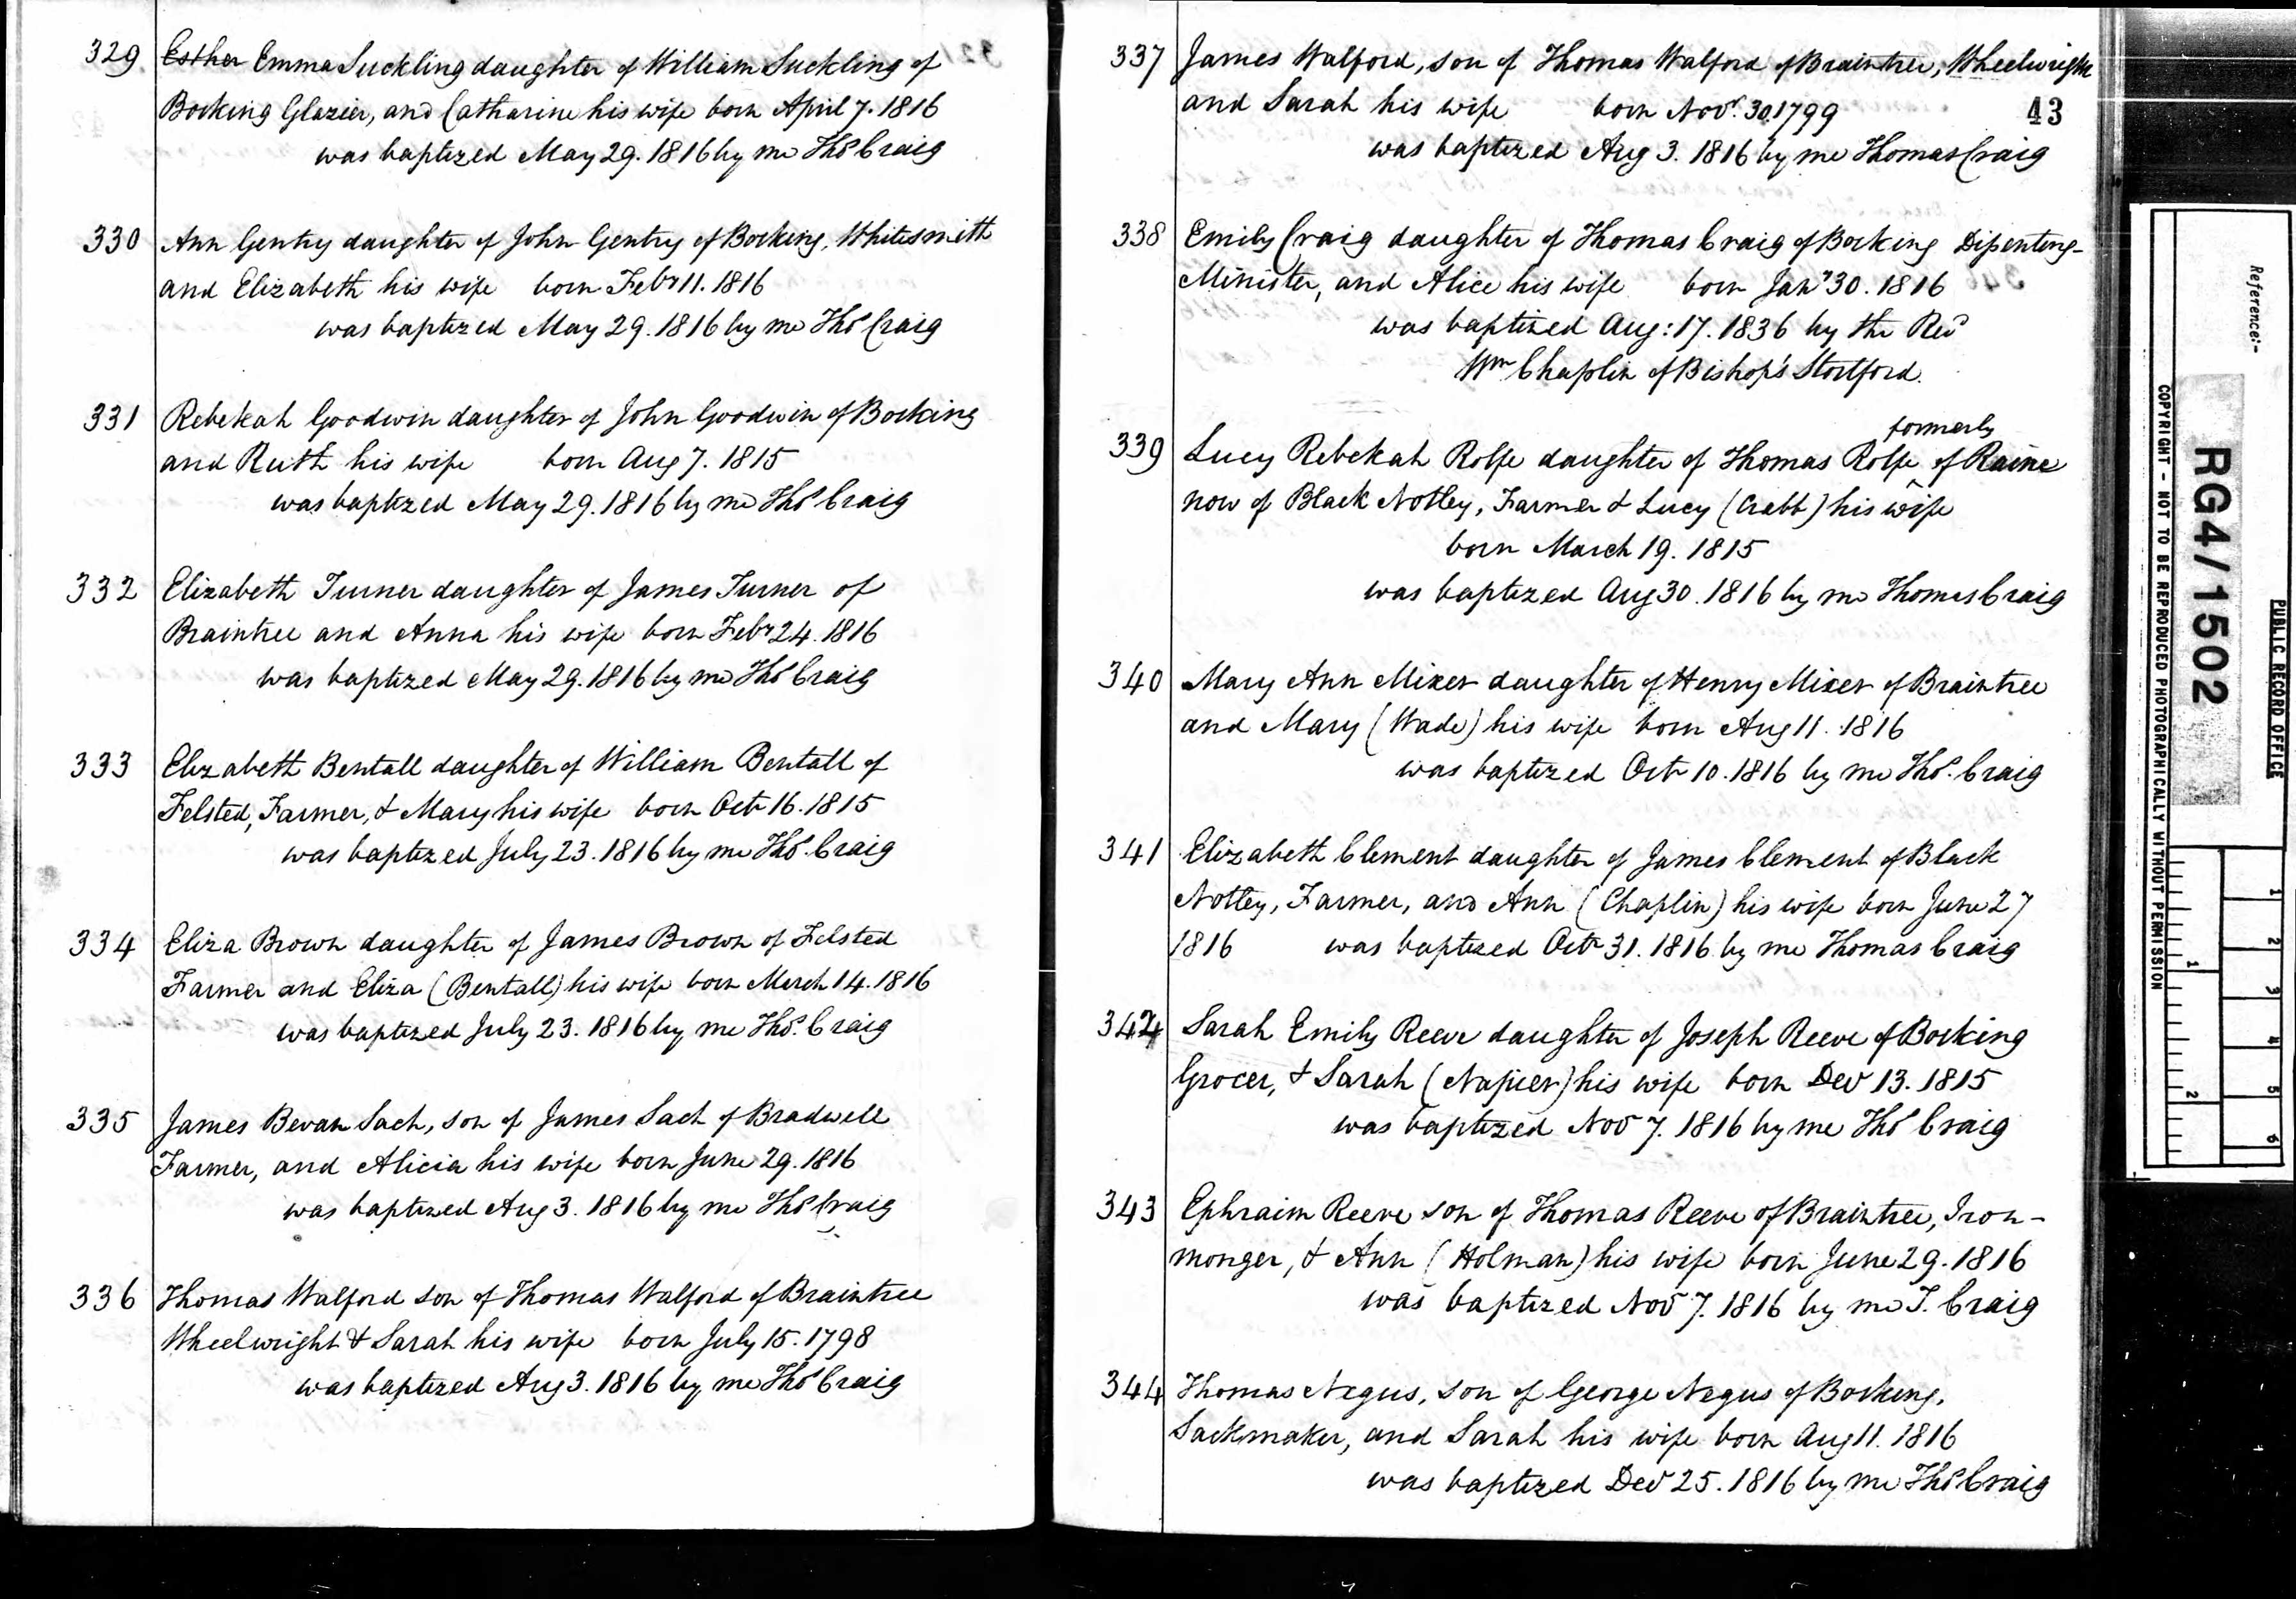 329 Esther Emma Suckling daughter of William Suckling of
Bocking Glazier, and Catharine his wife born April 7. 1816
was baptized May 29. 1816 by me Thos Craig
330 Ann Gentry daughter of John Gentry of Bocking, Whitesmith
and Elizabeth his wife born Feby 11. 1816
was baptized May 29. 1816 by me Thos Craig
331 Rebekah Goodwin daughter of John Goodwin of Bocking
and Ruth his wife born Aug 7. 1815
was baptized May 29. 1816 by me Thos Craig
332 Elizabeth Turner daughter of James Turner of
Braintree and Anna his wife born Feby 24. 1816
was baptized May 29. 1816 by me Thos Craig
333 Elizabeth Bentall daughter of William Bentall of
Felsted, Farmer, & Mary his wife born Octr 16. 1815
was baptized July 23. 1816 by me Thos. Craig
334 Eliza Brown daughter of James Brown of Felsted
Farmer and Eliza (Bentall) his wife born March 14. 1816
was baptized July 23. 1816 by me Thos. Craig
335 James Bevan Sach, son of James Sach of Bradwell
Farmer, and Alicia his wife born June 29. 1816
was baptized Aug 3. 1816 by me Thos Craig
336 Thomas Walford son of Thomas Walford of Braintree
Wheelwright & Sarah his wife born July 15. 1798
was baptized Aug 3. 1816 by me Thos Craig
337 James Walford, son of Thomas Walford of Braintree, Wheelwright
and Sarah his wife born Novr. 30. 1799
43
was baptized Aug 3. 1816 by me Thomas Craig
338 Emily Craig daughter of Thomas Craig of Bocking Dissenting-
Minister, and Alice his wife born Jany 30. 1816
was baptized Aug: 17. 1836 by the Revd
Wm Chaplin of Bishop's Stortford.
formerly
339 Lucy Rebekah Rolfe daughter of Thomas Rolfe of Raine
now of Black Notley, Farmer & Lucy (Crabb) his wife
born March 19. 1815
was baptized Aug 30. 1816 by me Thomas Craig
340 Mary Ann Mixer daughter of Henry Mixer of Braintree
and Mary (Wade) his wife born Aug 11. 1816
was baptized Octr 10. 1816 by me Thos. Craig
341 Elizabeth Clement daughter of James Clement of Black
Notley, Farmer, and Ann (Chaplin) his wife born June 27
1816 was baptized Octr 31. 1816 by me Thomas Craig
342 Sarah Emily Reeve daughter of Joseph Reeve of Bocking
Grocer, & Sarah (Napier) his wife born Decr 13. 1815
was baptized Novr 7. 1816 by me Thos Craig
343 Ephraim Reeve son of Thomas Reeve of Braintree, Iron-
monger, & Ann (Holman) his wife born June 29. 1816
was baptized Novr 7. 1816 by me T. Craig
344 Thomas Negus, son of George Negus of Bocking,
Sackmaker, and Sarah his wife born Aug 11. 1816
was baptized Decr 25. 1816 by me Thos Craig
PUBLIC RECORD OFFICE
Reference:-
RG4/1502
COPYRIGHT - NOT TO BE REPRODUCED PHOTOGRAPHICALLY WITHOUT PERMISSION
1 2 3 4 5 6
1 2